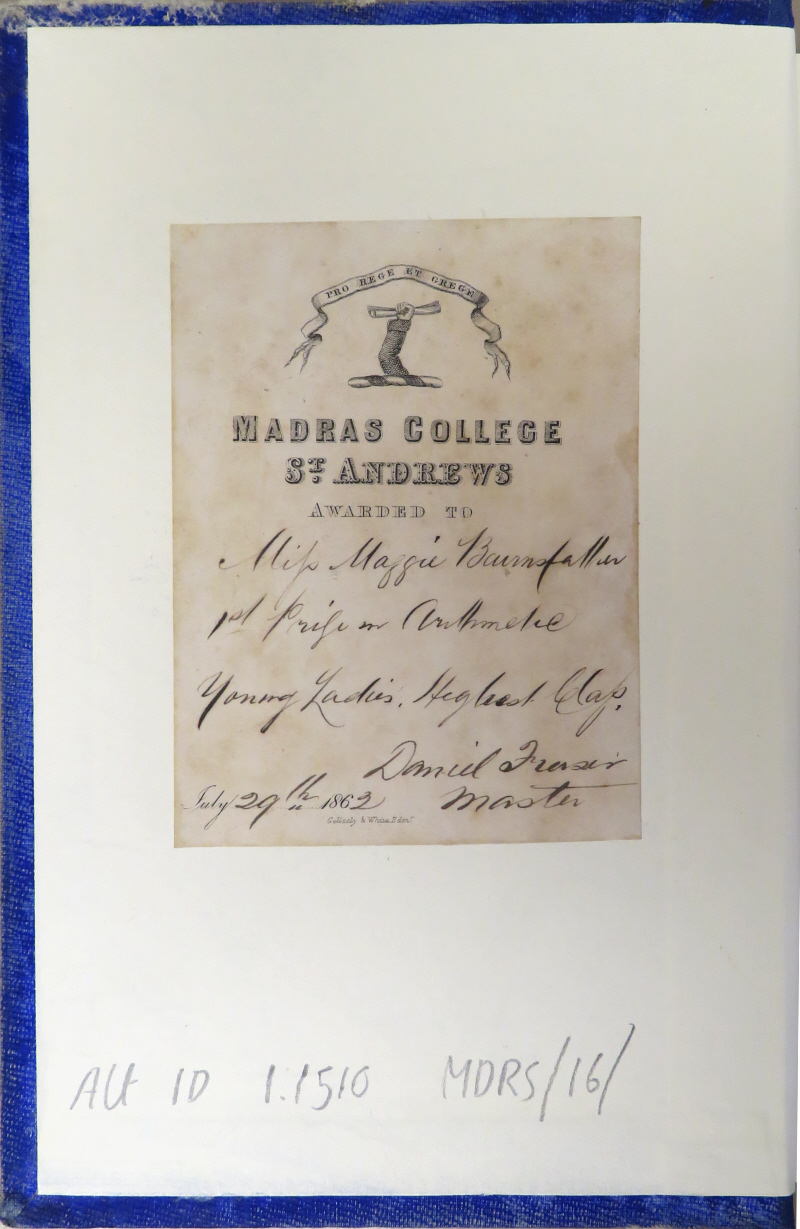 PRO REGE ET GREGE
MADRAS COLLEGE
ST. ANDREWS
AWARDED TO
Miss Maggie Bairnsfather
1st Prize in Arithmetic
Young Ladies. Highest Class.
Daniel Fraser
Master
July 29th 1862
Alt ID 1.1510 MDRS/16/